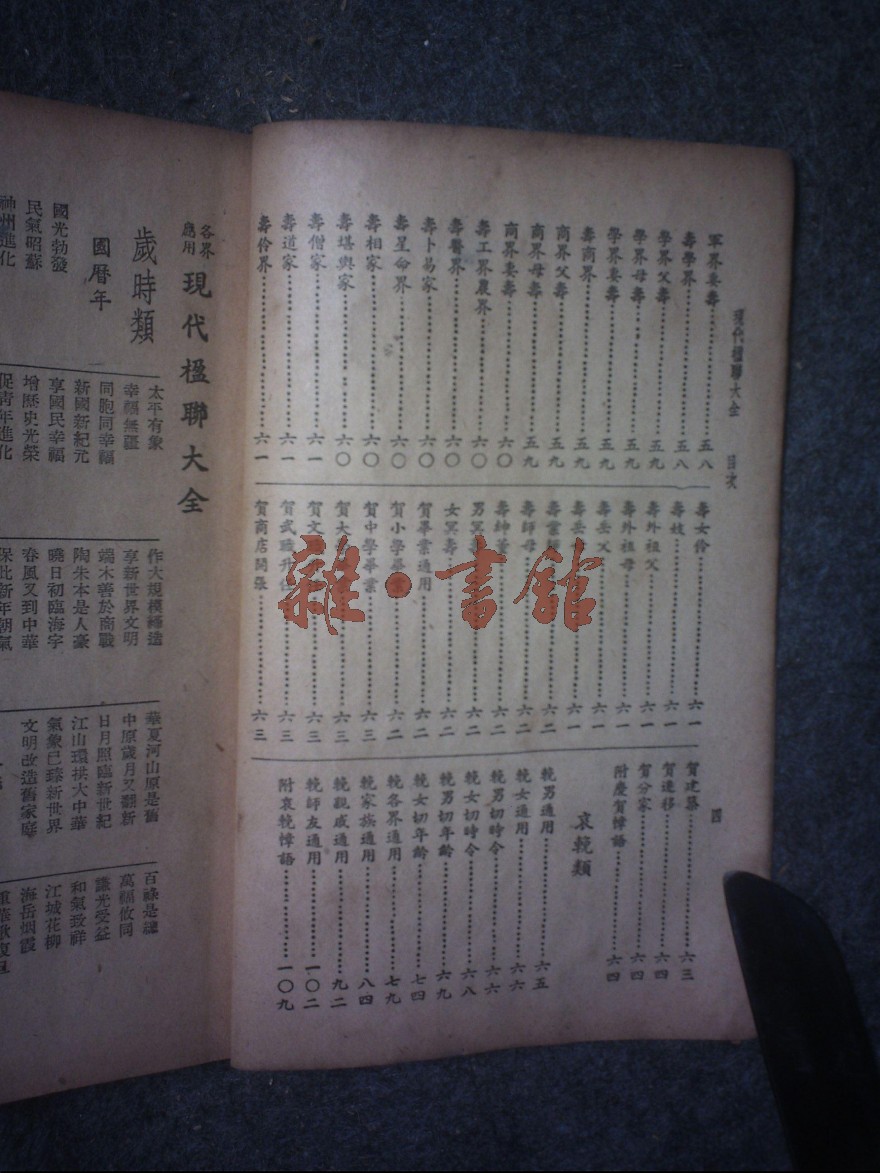 現代楹聯大全 目次
四
軍界妻壽 五八
壽學界 五八
學界父壽 五九
學界母壽 五九
學界妻壽 五九
壽商界 五九
商界父壽 五九
商界母壽 五九
商界妻壽 六〇
壽工界農界 六〇
壽醫界 六〇
壽卜易家 六〇
壽星命界 六〇
壽相家 六〇
壽堪輿家 六〇
壽僧家 六一
壽道家 六一
壽伶界 六一
壽女伶 六一
壽妓 六一
壽外祖父 六一
壽外祖母 六一
壽岳父 六一
六一
六二
壽師母 六二
六二
六二
女冥壽 六二
賀畢業通用 六二
賀小學畢業 六二
賀中學畢業 六三
六三
六三
六三
賀商店開張 六三
賀建築 六三
賀遷移 六四
賀分家 六四
附慶賀幛語 六四
哀輓類
輓男通用 六五
輓女通用 六六
輓男切時令 六六
輓女切時令 六八
輓男切年齡 六九
輓女切年齡 七四
輓各界通用 七九
輓家族通用 八四
輓親戚通用 九二
輓師友通用 一〇二
附哀輓幛語 一〇九
雜·書館
各界應用 現代楹聯大全
歲時類
國曆年
國光勃發
民氣昭蘇
神州進化
太平有象
幸福無疆
同胞同幸福
新國新紀元
享國民幸福
增歷史光榮
促青年進化
作大規模締造
享新世界文明
端木善於商戰
陶朱本是人豪
曉日初臨海宇
春風又到中華
保此新年朝氣
華夏河山原是舊
中原歲月又翻新
日月照臨新世紀
江山環拱大中華
氣象已臻新世界
文明改造舊家庭
百祿是總
萬福攸同
謙光受益
和氣致祥
江城花柳
海岳烟霞